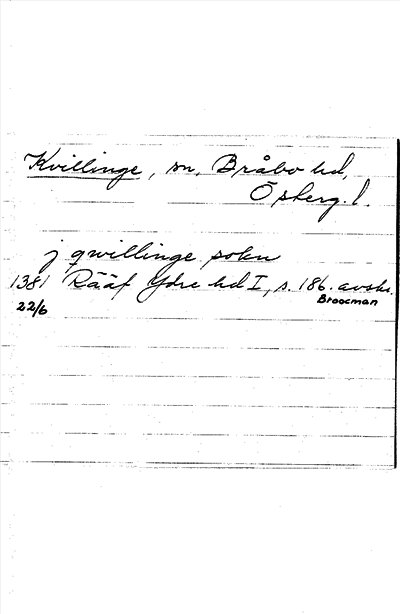 Kvillinge, sn, Bråbo hd,
Österg. l.
j qwillinge sokn
1381 Rääf Ydre hd I, s. 186. avskr.
22/6 Broocman